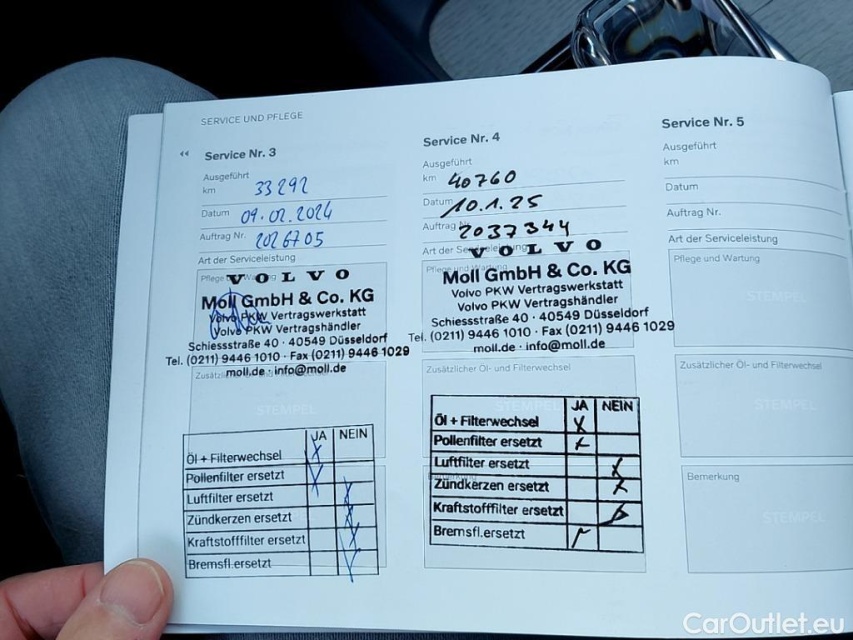 SERVICE UND PFLEGE
Service Nr. 3
Ausgeführt
km 33292
Datum 09.02.2024
Auftrag Nr. 2026705
Art der Serviceleistung
Pflege und Wartung
VOLVO
Moll GmbH & Co. KG
Volvo PKW Vertragswerkstatt
Volvo PKW Vertragshändler
Schiessstraße 40 · 40549 Düsseldorf
Tel. (0211) 9446 1010 · Fax (0211) 9446 1029
moll.de · info@moll.de
STEMPEL
JA NEIN
Öl + Filterwechsel X
Pollenfilter ersetzt X
Luftfilter ersetzt X
Zündkerzen ersetzt X
Kraftstofffilter ersetzt X
Bremsfl.ersetzt
Service Nr. 4
Ausgeführt
km 40760
Datum 10.1.25
Auftrag Nr. 2037344
Art der Serviceleistung
Pflege und Wartung
VOLVO
Moll GmbH & Co. KG
Volvo PKW Vertragswerkstatt
Volvo PKW Vertragshändler
Schiessstraße 40 · 40549 Düsseldorf
Tel. (0211) 9446 1010 · Fax (0211) 9446 1029
moll.de · info@moll.de
Zusätzlicher Öl- und Filterwechsel
JA NEIN
Öl + Filterwechsel X
Pollenfilter ersetzt X
Luftfilter ersetzt X
Zündkerzen ersetzt X
Kraftstofffilter ersetzt
Bremsfl.ersetzt
Service Nr. 5
Ausgeführt
km
Datum
Auftrag Nr.
Art der Serviceleistung
Pflege und Wartung
STEMPEL
Zusätzlicher Öl- und Filterwechsel
STEMPEL
Bemerkung
STEMPEL
CarOutlet.eu